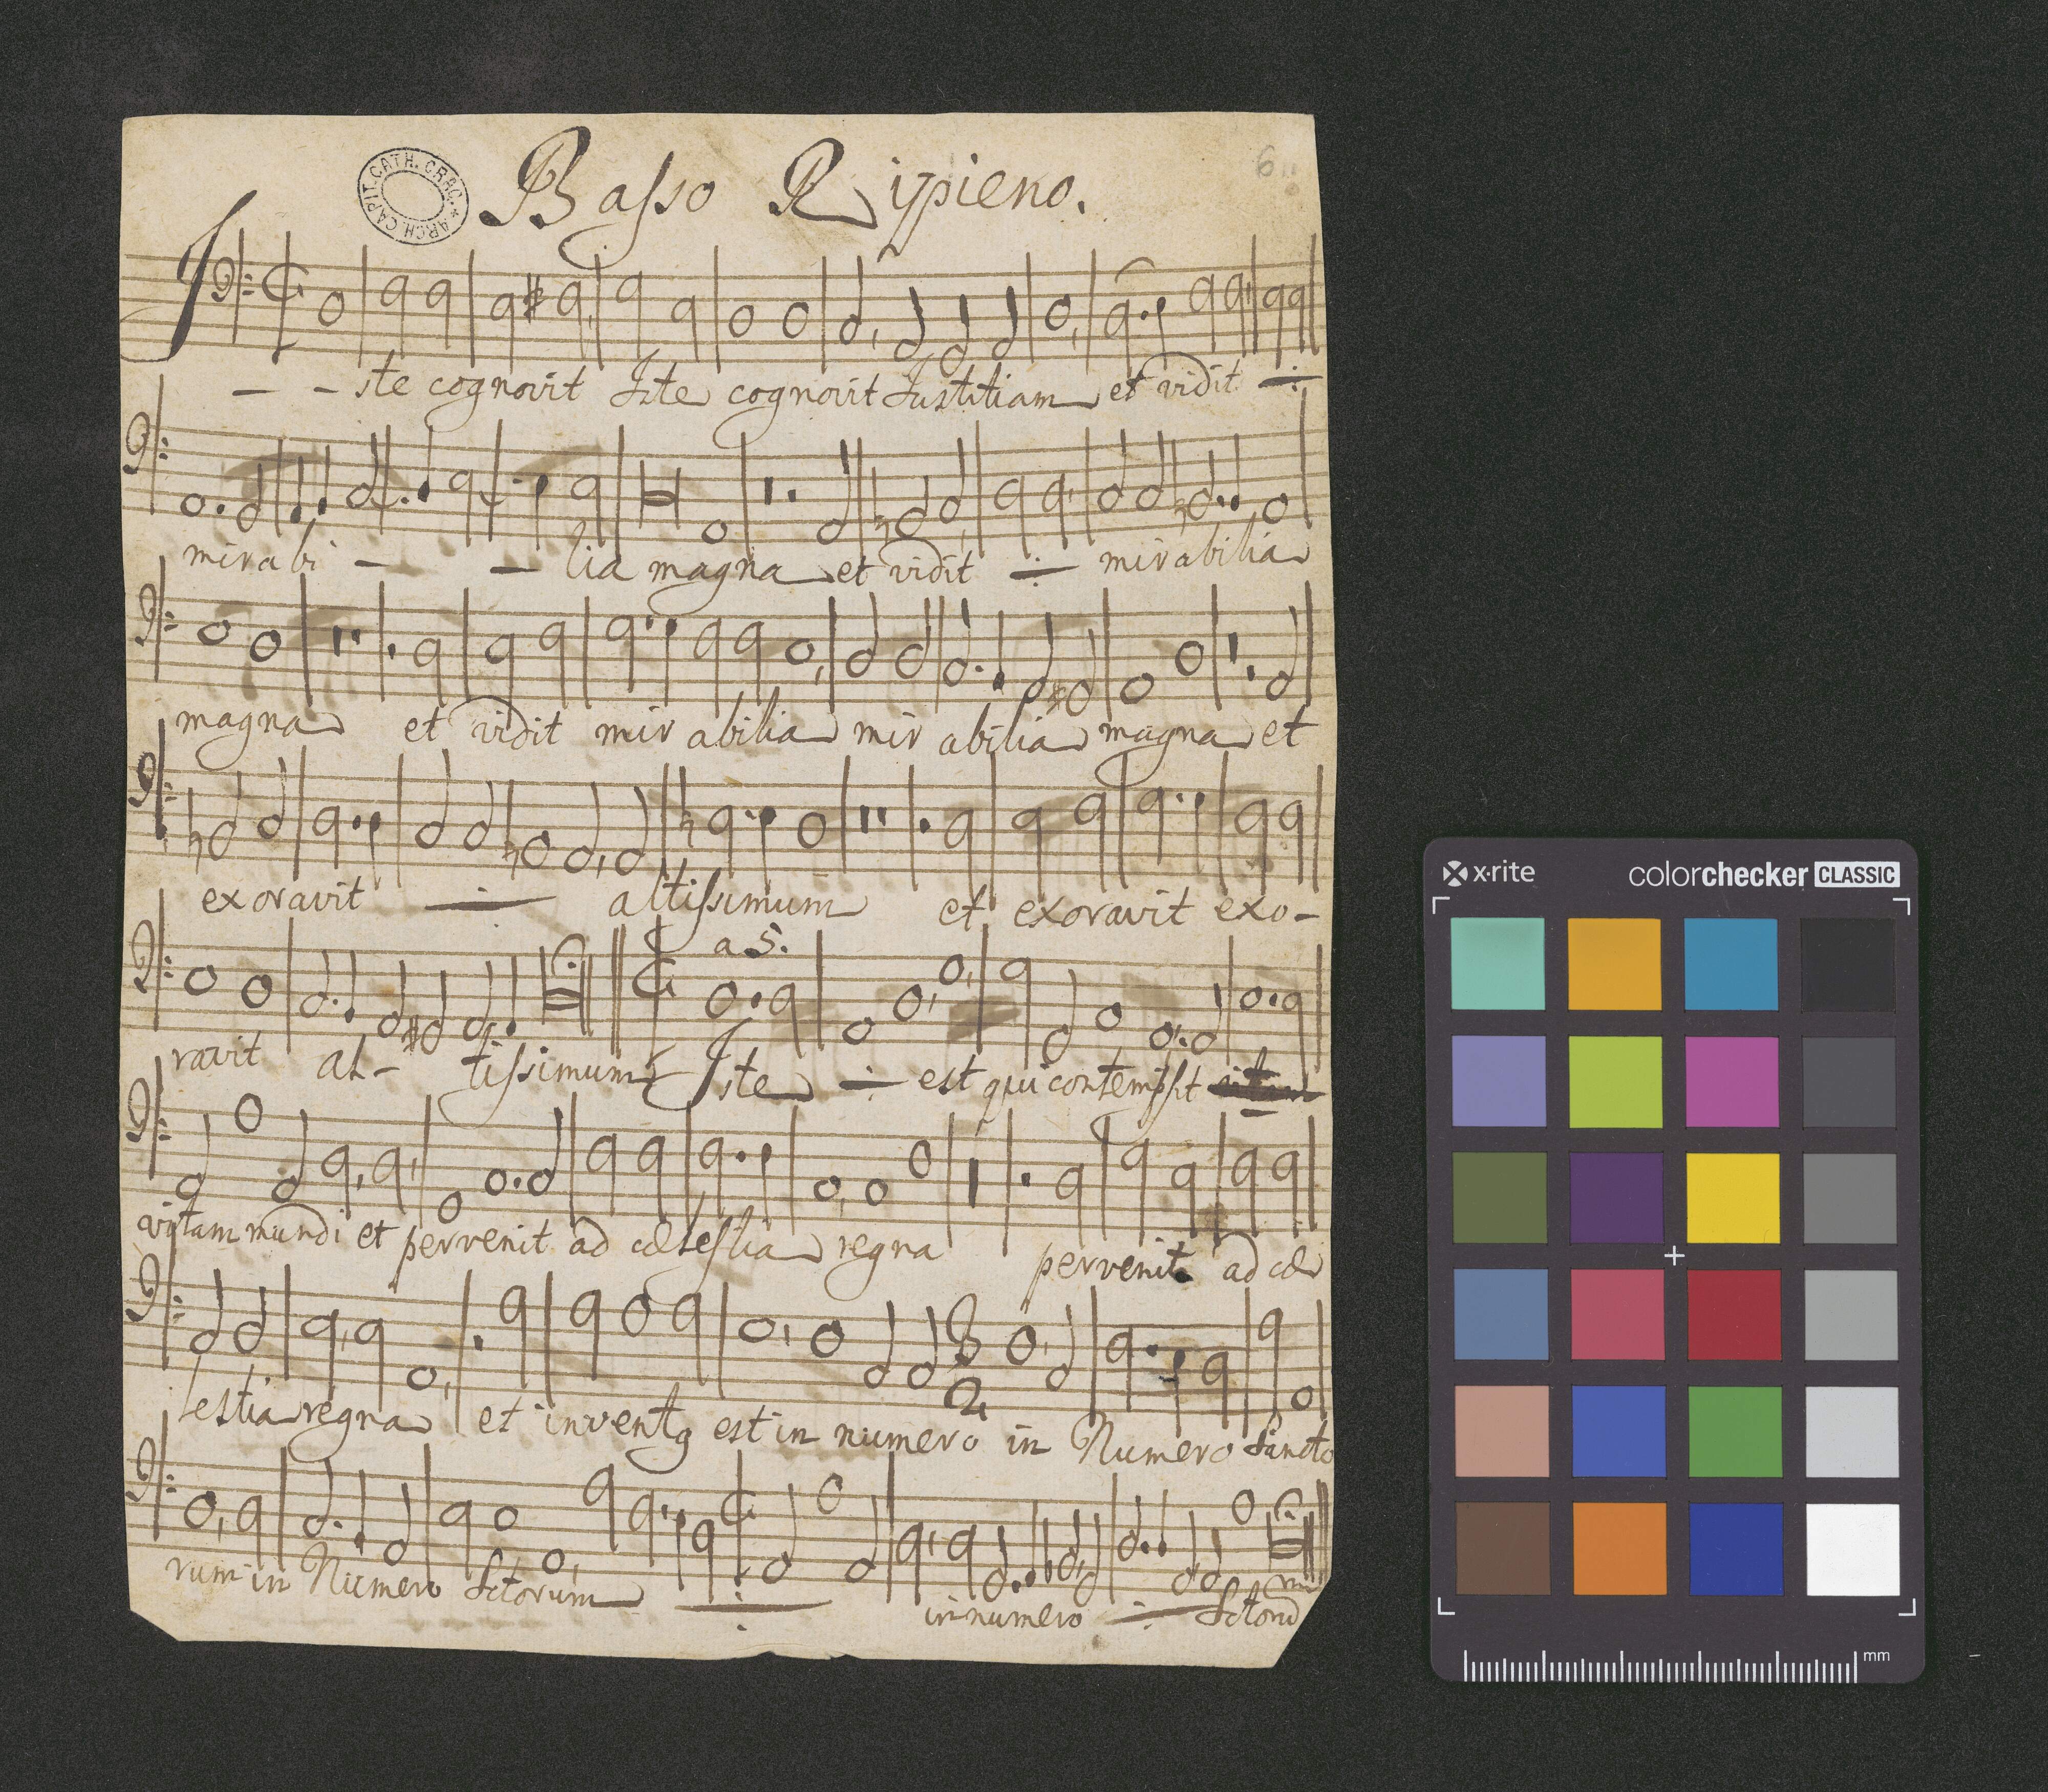 Basso Ripieno.
6
ARCH. CAPIT. CATH. CRAC. *
Iste cognovit Iste cognovit Justitiam et vidit ÷
mirabi - - lia magna et vidit ÷ mirabilia
magna et vidit mirabilia mirabilia magna et
exoravit ÷ altissimum et exoravit exo-
a 5.
ravit al- tissimum Iste ÷ est qui contempsit
vitam mundi et pervenit ad cælestia regna pervenit ad cæ
lestia regna et inventq est in numero in Numero Sancto
rum in Numero Sctorum ÷ in numero ÷ Sctorum
x-rite colorchecker CLASSIC
mm